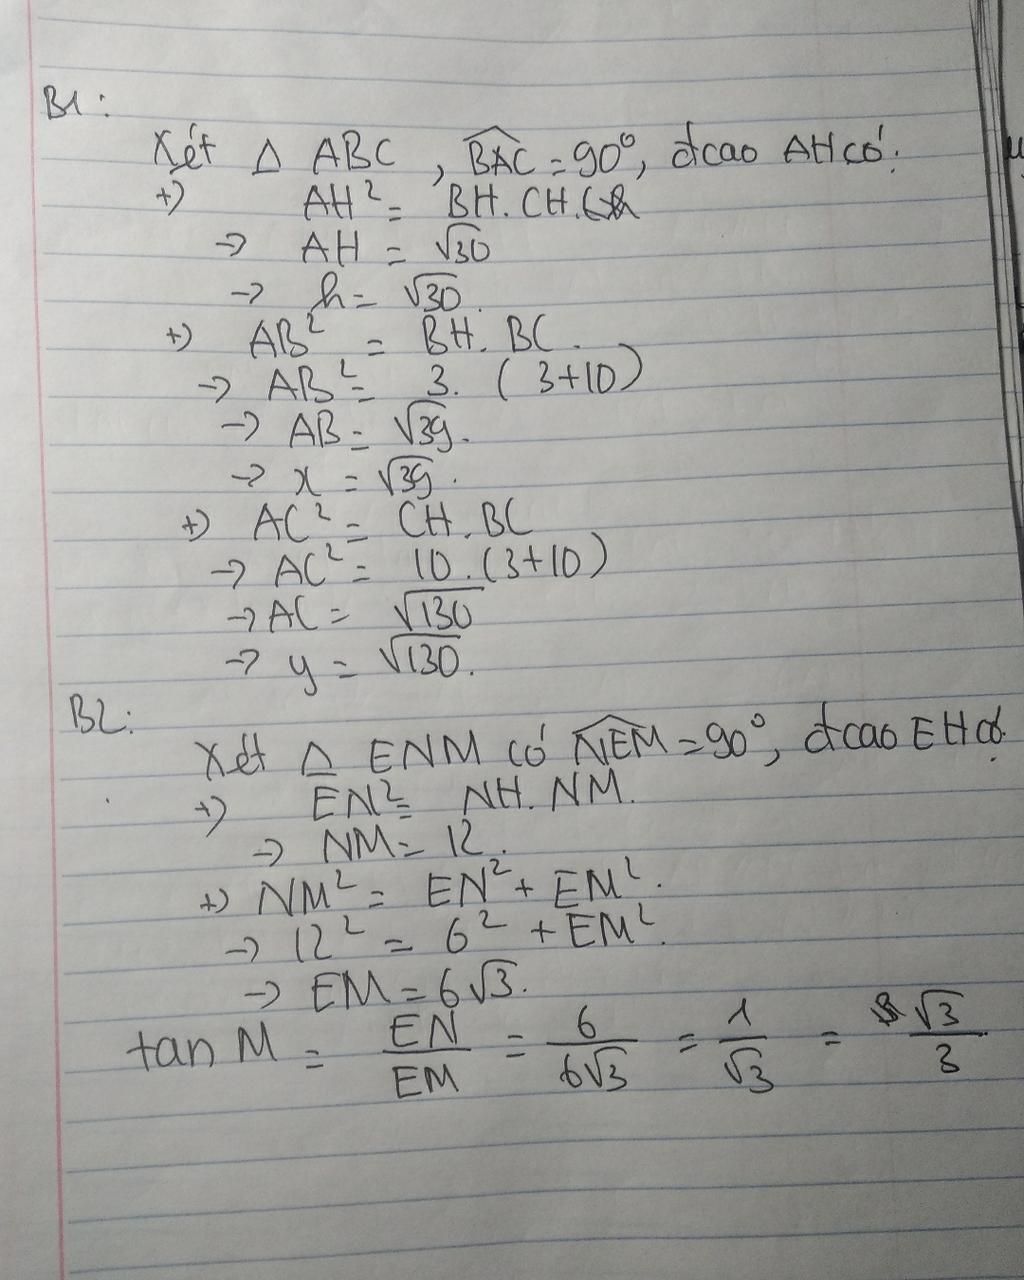 B1:
Xét Δ ABC, BAC = 90°, đcao AH có:
+) AH² = BH. CH.
→ AH = √30
→ h = √30.
+) AB² = BH. BC.
→ AB² = 3. (3+10)
→ AB = √39.
→ x = √39.
+) AC² = CH. BC
→ AC² = 10.(3+10)
→ AC = √130
→ y = √130.
B2:
Xét Δ ENM có NEM = 90°, đcao EH có:
+) EN² = NH. NM.
→ NM = 12.
+) NM² = EN² + EM².
→ 12² = 6² + EM².
→ EM = 6√3.
tan M = EN/EM = 6/6√3 = 1/√3 = √3/3